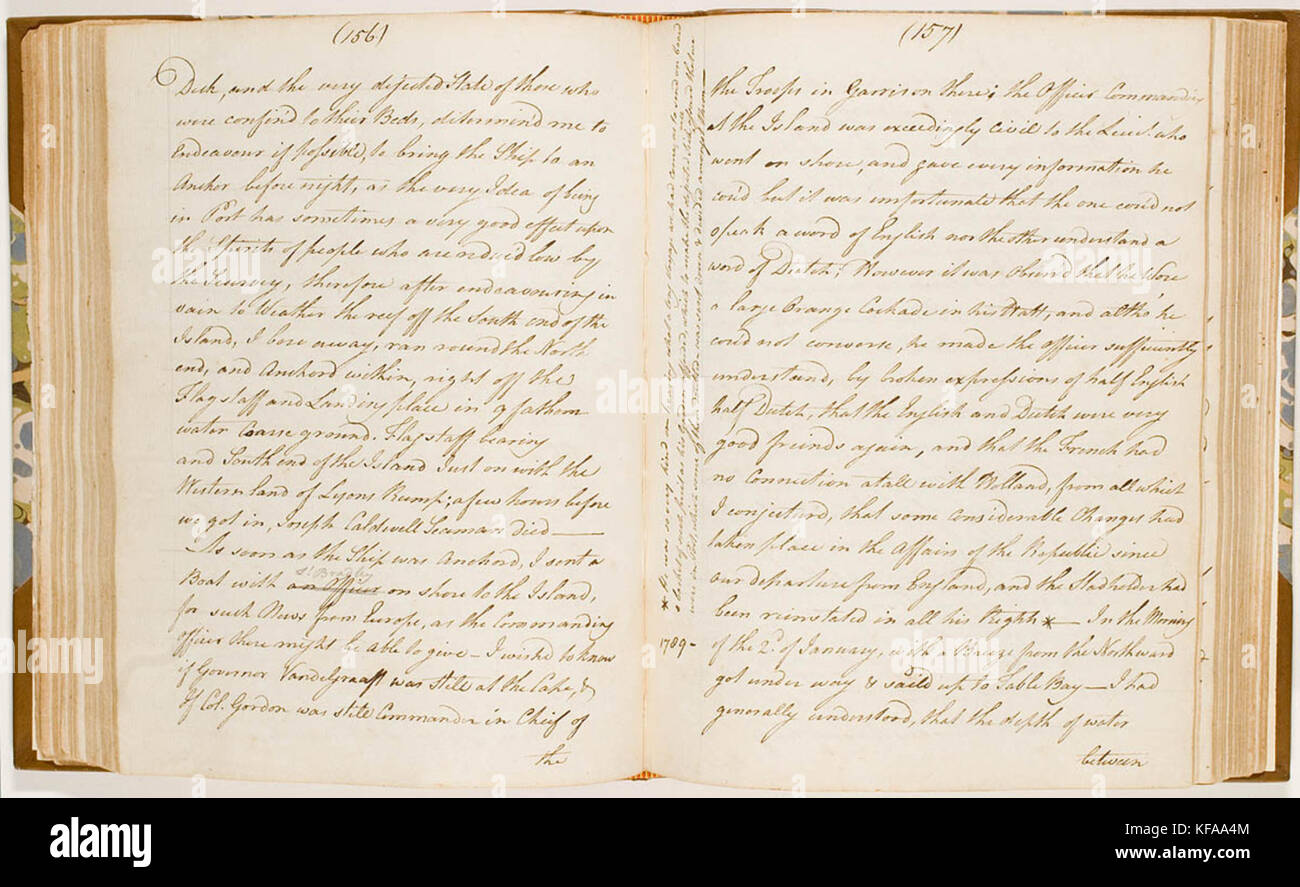 (156)
Deck, and the very dejected State of those who
were confind to their Beds, determind me to
Endeavour if possible, to bring the Ship to an
Anchor before night, as the very Idea of being
in Port has sometimes a very good effect upon
the Spirits of people who are reduced low by
the Scurvey, therefore after endeavouring in
vain to Weather the reef off the South end of the
Island, I bore away, ran round the North
end, and Anchord within, right off the
Flagstaff and Landing place in 9 fathom
water Coarse ground. Flagstaff bearing
and South end of the Island Just on with the
Western land of Lyons Rump; a few hours before
we got in, Joseph Caldwell Seaman died —
As soon as the Ship was Anchord, I sent a
Lt. Bradley
Boat with an officer on shore to the Island,
for such News from Europe, as the Commanding
officer there might be able to give — I wished to know
if Governor VandeGraaff was still at the Cape, &
If Col. Gordon was still Commander in Chief of
the
(157)
the Troops in Garrison there; the Officer Commanding
at the Island was exceedingly civil to the Lieut. who
went on shore, and gave every information he
coud but it was unfortunate that the one could not
speak a word of English nor the other understand a
word of Dutch; However it was observd that he Wore
a large Orange Cockade in his Hatt, and altho' he
could not converse, he made the officer sufficiently
understand, by broken expressions of half English
half Dutch, that the English and Dutch were very
good friends again, and that the French had
no Connection atall with Holland, from all which
I conjecturd, that some considerable Changes had
taken place in the Affairs of the Republic since
our departure from England, and the Stadholder had
been reinstated in all his Rights * — In the Morning
1789 -
of the 2d. of January, with a Breeze from the Northward
got under way & saild up to Table Bay — I had
generally understood, that the depth of water
between
* He was so very kind on hearing what a long voyage we had
a basket of
alamy
a
alamy
Image ID: KFAA4M
www.alamy.com